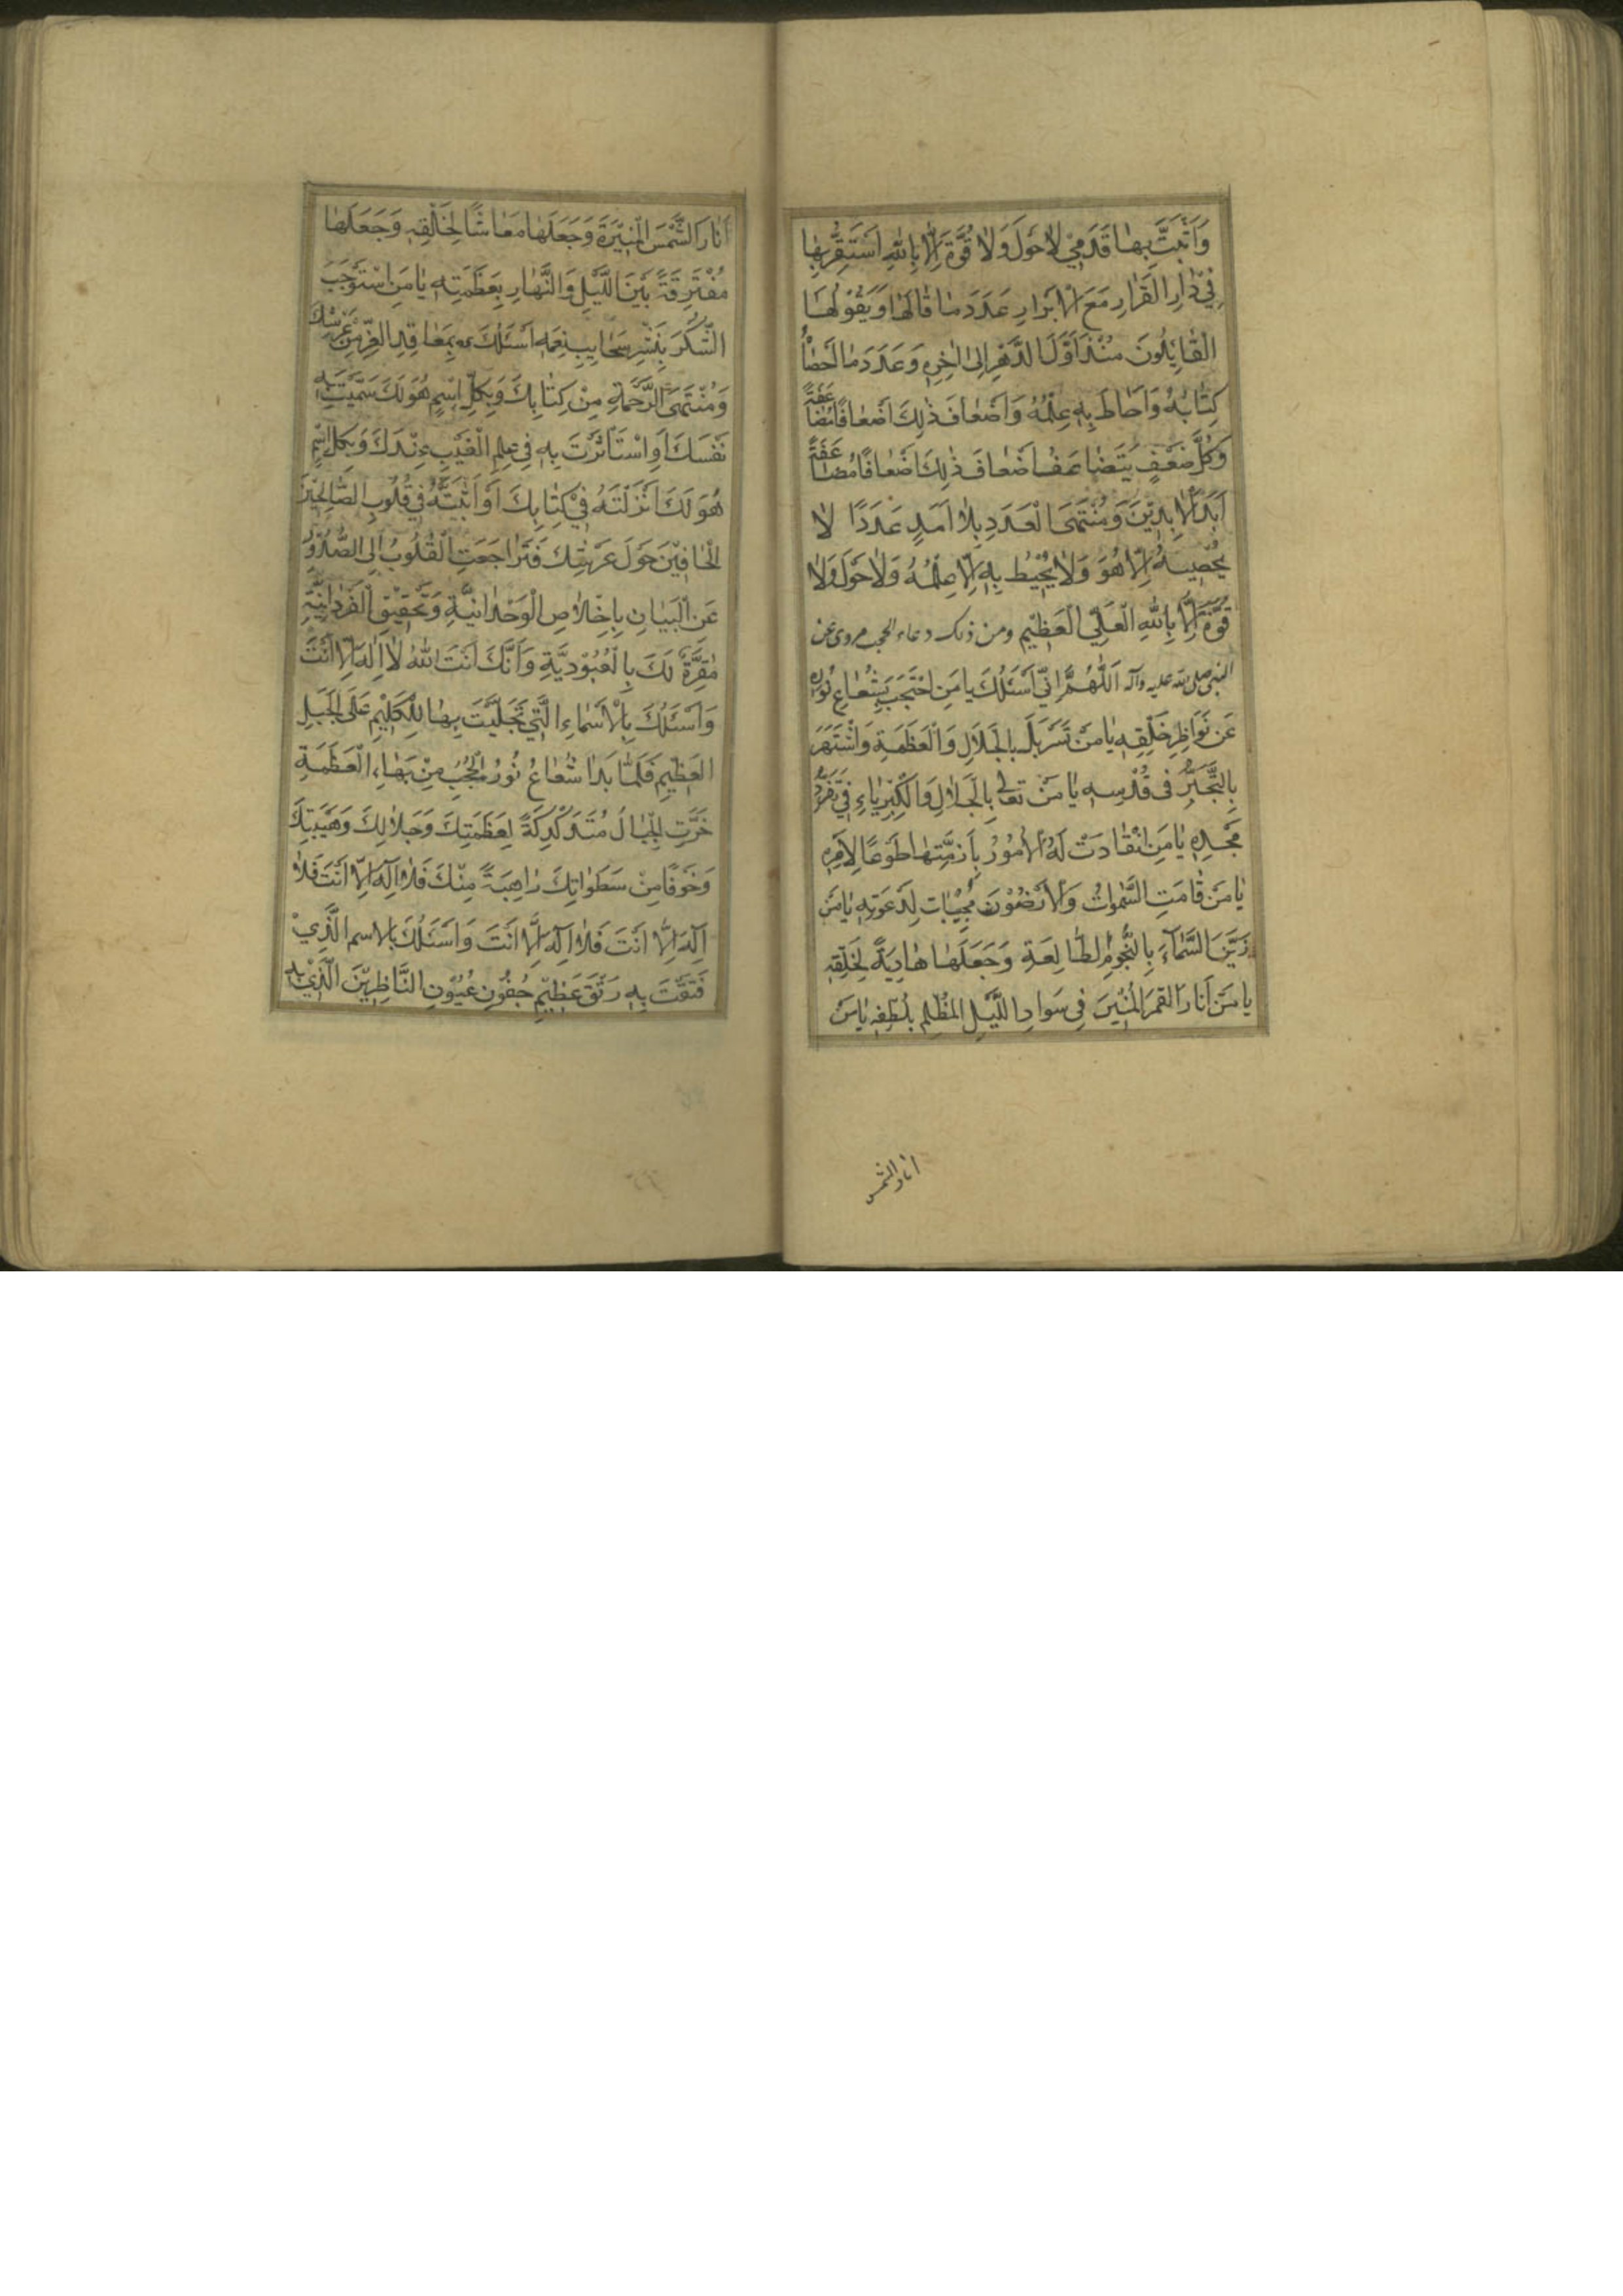 وَاُثَبِّتُ بِهٰا قَدَمِي لاٰحَوْلَ وَلاٰ قُوَّةَ اِلاّٰ بِاللّٰهِ اَسْتَقِرُّ بِهٰا
فِي دٰارِ الْقَرٰارِ مَعَ الْاَبْرٰارِ عَدَدَ مٰا قٰالَهٰا وَيَقُوْلُهٰا
الْقٰائِلُونَ مُنْذُ اَوَّلِ الدَّهْرِ اِلىٰ اٰخِرِهِ وَعَدَدَ مٰا اَحْصٰاُ
كِتٰابُهُ وَاَحٰاطَ بِهِ عِلْمُهُ وَاَضْعٰافَ ذٰلِكَ اَضْعٰافًا مُضٰاعَفَةً
وَكُلَّ ضِعْفٍ يَتَضٰاعَفُ اَضْعٰافَ ذٰلِكَ اَضْعٰافًا مُضٰاعَفَةً
اَبَدَ الْاٰبِدِيْنَ وَمُنْتَهَى الْعَدَدِ بِلاٰ اَمَدٍ عَدَدًا لاٰ
يُحْصِيْهِ اِلاّٰ هُوَ وَلاٰ يُحِيْطُ بِهِ اِلاّٰ عِلْمُهُ وَلاٰ حَوْلَ وَلاٰ
قُوَّةَ اِلاّٰ بِاللّٰهِ الْعَلِيِّ الْعَظِيْمِ ومن ذلك دعاء الحجب مروى عن
النبى صلى الله عليه وآله اَللّٰهُمَّ اِنّي اَسْئَلُكَ يا مَنِ احْتَجَبَ بِشُعٰاعِ نُوْرِهِ
عَنْ نَوٰاظِرِ خَلْقِهِ يٰا مَنْ تَسَرْبَلَ بِالْجَلاٰلِ وَالْعَظَمَةِ وَاشْتَهَرَ
بِالتَّجَبُّرِ فى قُدْسِهِ يٰا مَنْ تَعٰالىٰ بِالْجَلاٰلِ وَالْكِبْرِيٰاءِ فِي تَفَرُّدِ
مَجْدِهِ يٰا مَنِ انْقٰادَتْ لَهُ الْاُمُوْرُ بِاَزِمَّتِهٰا طَوْعًا لِاَمْرِهِ
يٰا مَنْ قٰامَتِ السَّمٰوٰاتُ وَالْاَرَضُوْنَ مُجِيْبٰاتٍ لِدَعْوَتِهِ يٰا مَنْ
زَيَّنَ السَّمٰآءَ بِالنُّجُوْمِ الطّٰالِعَةِ وَجَعَلَهٰا هٰادِيَةً لِخَلْقِهِ
يا مَنْ اَنٰارَ الْقَمَرَ الْمُنِيْرَ فِى سَوٰادِ اللَّيْلِ الْمُظْلِمِ بِلُطْفِهِ يٰا مَنْ
انار الشمس
اَنٰارَ الشَّمْسَ الْمُنِيْرَةَ وَجَعَلَهٰا مَعٰاشًا لِخَلْقِهِ وَجَعَلَهٰا
مُفْتَرِقَةً بَيْنَ اللَّيْلِ وَالنَّهٰارِ بِعَظَمَتِهِ يٰا مَنِ اسْتَوْجَبَ
الشُّكْرَ بِنَشْرِ سَحٰايِبِ نِعَمِهِ اَسْئَلُكَ بِمَعٰاقِدِ الْعِزِّ مِنْ عَرْشِكَ
وَمُنْتَهَى الرَّحْمَةِ مِنْ كِتٰابِكَ وَبِكُلِّ اسْمٍ هُوَ لَكَ سَمَّيْتَ بِهِ
نَفْسَكَ اَوِ اسْتَأْثَرْتَ بِهِ فِي عِلْمِ الْغَيْبِ عِنْدَكَ وَبِكُلِّ اسْمٍ
هُوَ لَكَ اَنْزَلْتَهُ فِيْ كِتٰابِكَ اَوْ اَثْبَتَّهُ فِي قُلُوبِ الصّٰالِحِيْنَ
الْحٰافِّيْنَ حَوْلَ عَرْشِكَ فَتَرٰاجَعَتِ الْقُلُوبُ اِلَى الصُّدُوْرِ
عَنِ الْبَيٰانِ بِاِخْلاٰصِ الْوَحْدٰانِيَّةِ وَتَحْقِيْقِ الْفَرْدٰانِيَّةِ
مُقِرَّةً لَكَ بِالْعُبُوْدِيَّةِ وَاَنَّكَ اَنْتَ اللّٰهُ لاٰ اِلٰهَ اِلاّٰ اَنْتَ
وَاَسْئَلُكَ بِالْاَسْمٰاءِ الَّتِي تَجَلَّيْتَ بِهٰا لِلْكَلِيْمِ عَلَى الْجَبَلِ
الْعَظِيْمِ فَلَمّٰا بَدٰا شُعٰاعُ نُوْرِ الْحُجُبِ مِنْ بَهٰاءِ الْعَظَمَةِ
خَرَّتِ الْجِبٰالُ مُتَدَكْدِكَةً لِعَظَمَتِكَ وَجَلاٰلِكَ وَهَيْبَتِكَ
وَخَوْفًا مِنْ سَطَوٰاتِكَ رٰاهِبَةً مِنْكَ فَلاٰ اِلٰهَ اِلاّٰ اَنْتَ فَلاٰ
اِلٰهَ اِلاّٰ اَنْتَ فَلاٰ اِلٰهَ اِلاّٰ اَنْتَ وَاَسْئَلُكَ بِالاِسْمِ الَّذِيْ
فَتَقْتَ بِهِ رَتْقَ عَظِيْمِ جُفُوْنِ عُيُوْنِ النّٰاظِرِيْنَ الَّذِيْ بِهِ